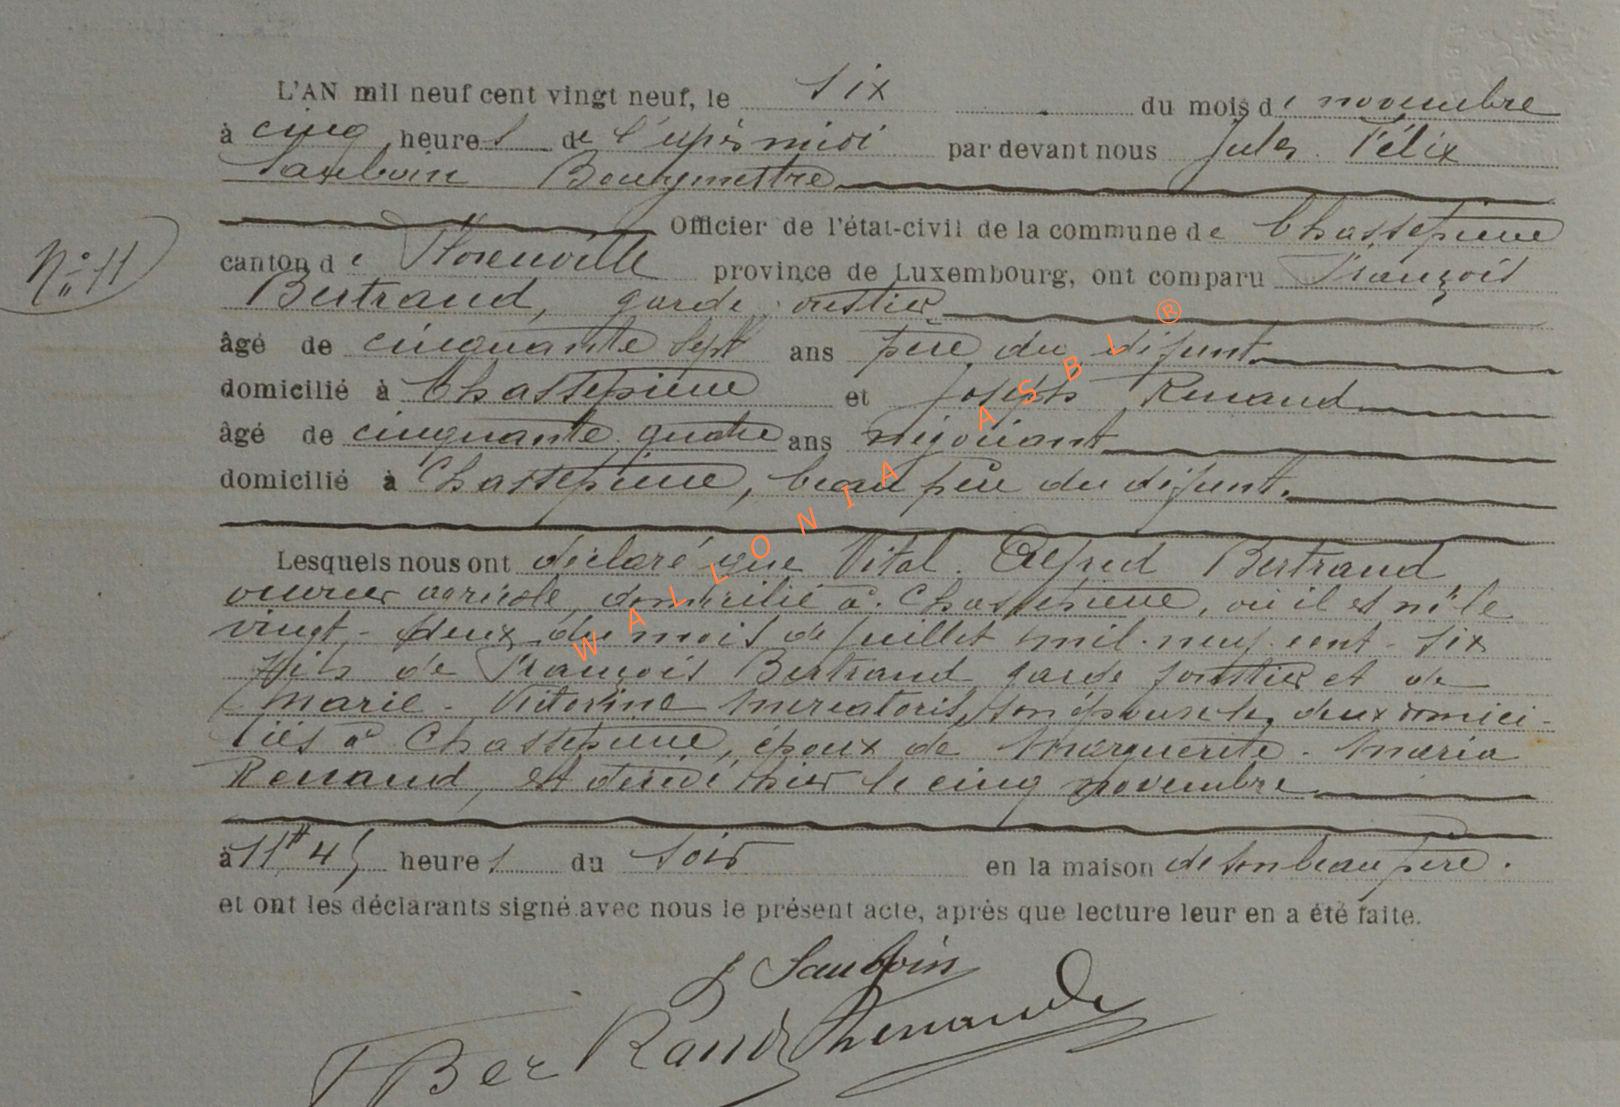 L'AN mil neuf cent vingt neuf, le six du mois de novembre
à cinq heures de l'après midi par devant nous Jules Félix
Sauboin Bourgmestre
Officier de l'état-civil de la commune de Chassepierre
N° 11
canton de Florenville province de Luxembourg, ont comparu François
Bertrand, garde forestier
âgé de cinquante sept ans père du défunt
domicilié à Chassepierre et Joseph Renaud
âgé de cinquante quatre ans négociant
domicilié à Chassepierre, beau père du défunt.
Lesquels nous ont déclaré que Vital Alfred Bertrand
ouvrier agricole, domicilié à Chassepierre, où il est né le
vingt-deux du mois de juillet mil neuf cent six
fils de François Bertrand garde forestier et de
Marie-Victorine Mercatoris, son épouse, deux domici-
liés à Chassepierre, époux de Marguerite-Maria
Renaud, est décédé hier le cinq novembre
à 11h 45 heures du soir en la maison de son beau père.
et ont les déclarants signé avec nous le présent acte, après que lecture leur en a été faite.
J Sauboin
F Bertrand Renaud
WALLONIA ASBL ®